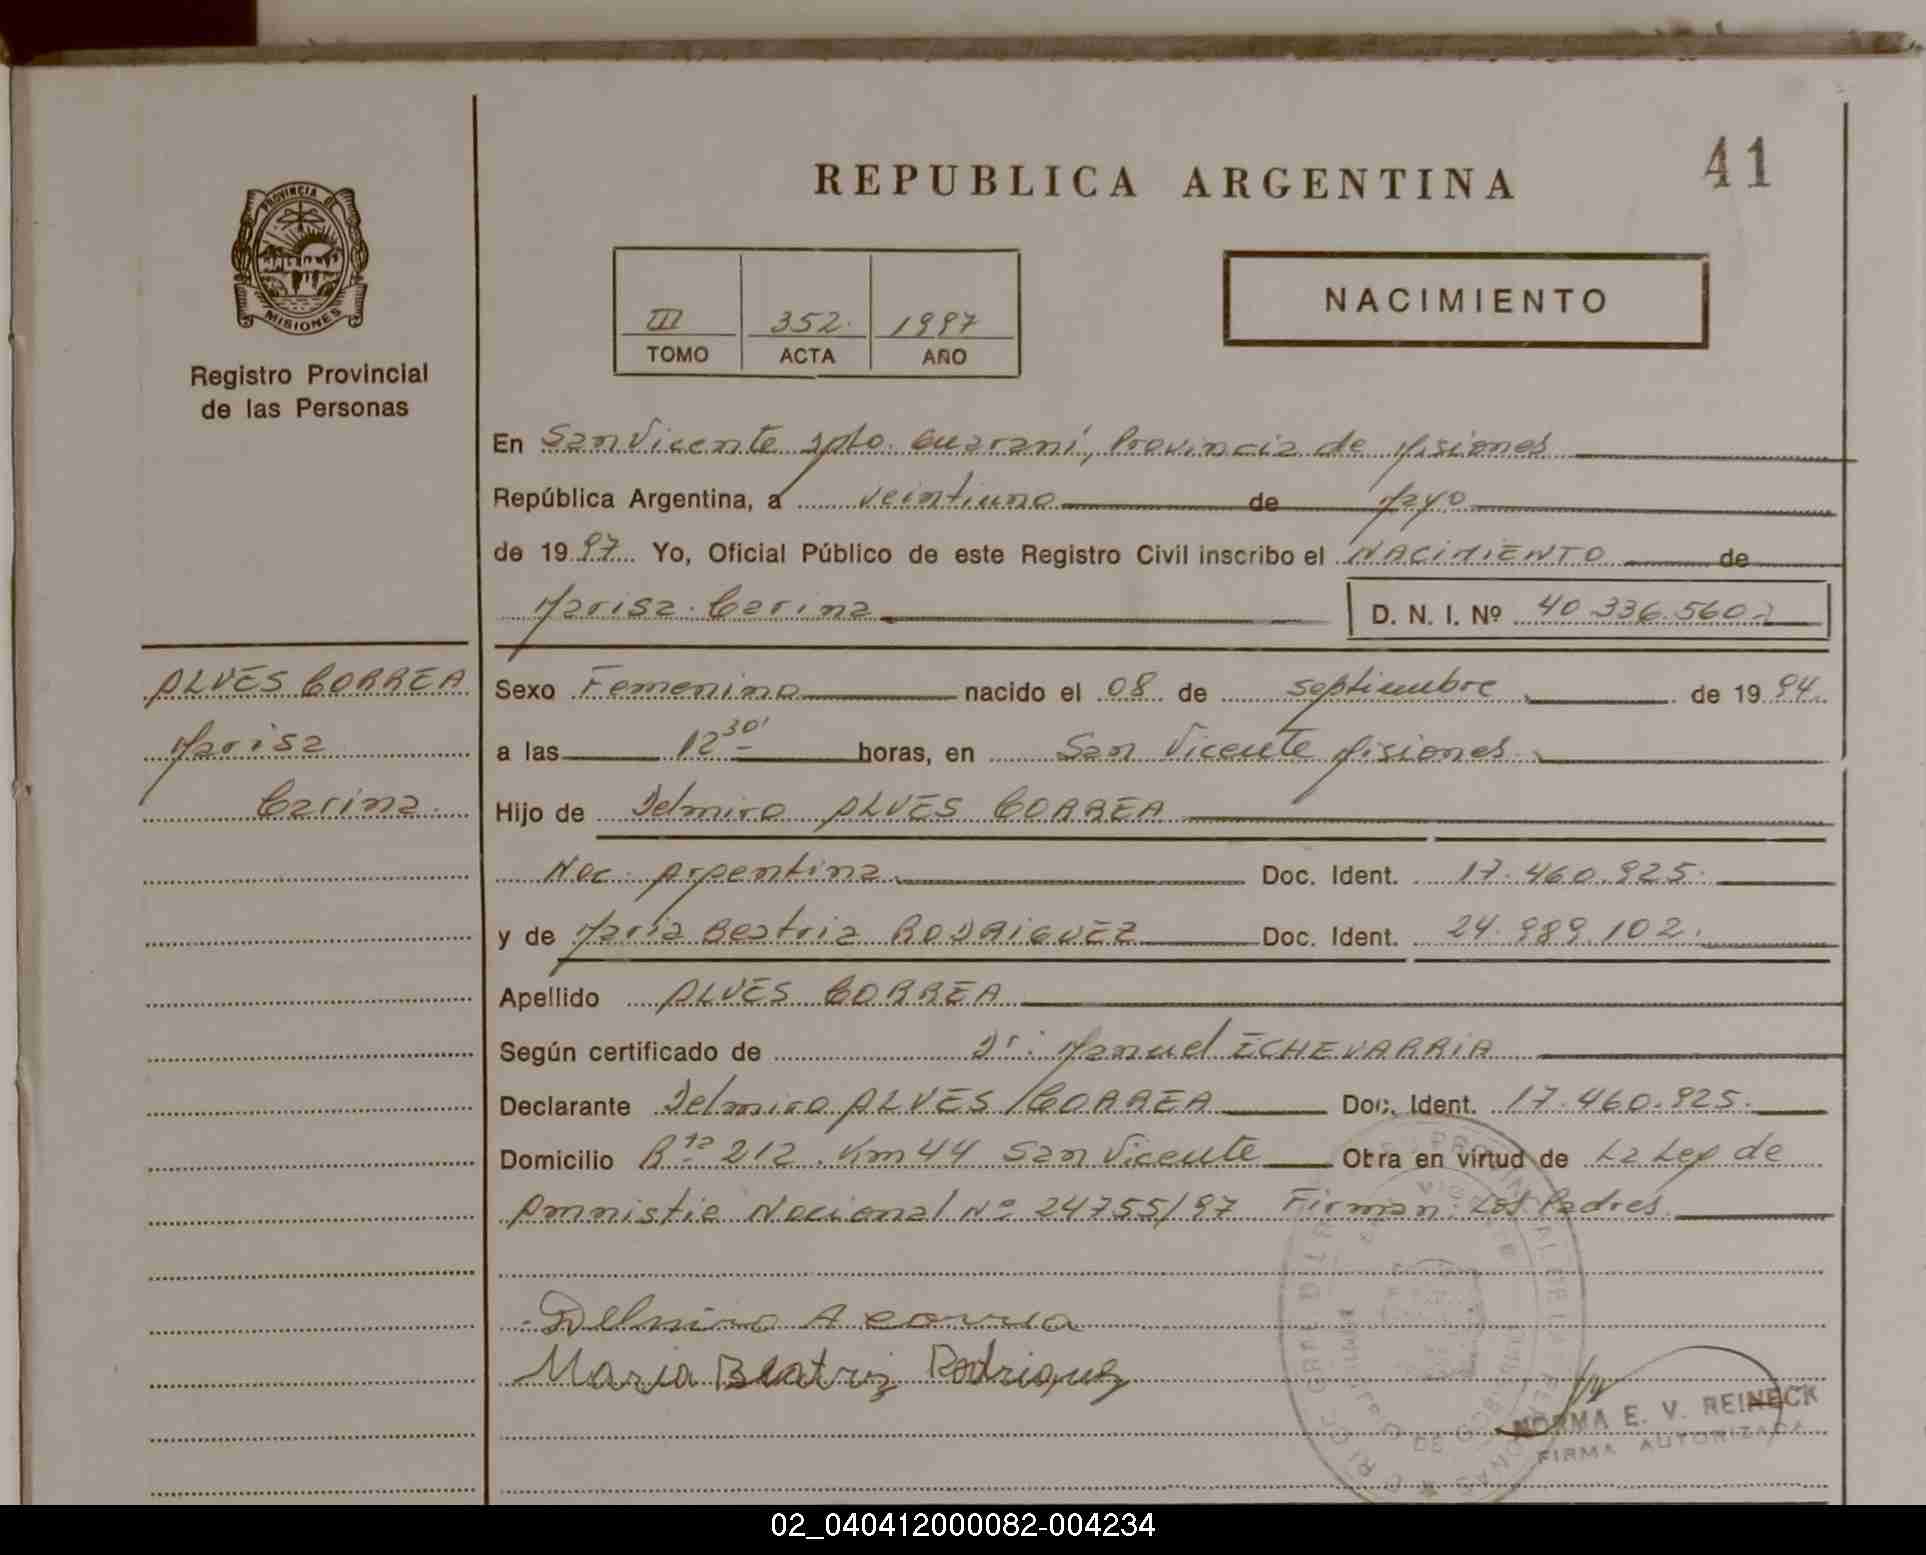 41
REPUBLICA ARGENTINA
PROVINCIA DE
MISIONES
Registro Provincial
de las Personas
III 352. 1997
TOMO ACTA AÑO
NACIMIENTO
En San Vicente Dpto. Guaraní, Provincia de Misiones
República Argentina, a veintiuno de Mayo
de 1997 Yo, Oficial Público de este Registro Civil inscribo el NACIMIENTO de
Marisa Carina D. N. I. Nº 40.336.560
ALVES CORREA
Marisa
Carina.
Sexo Femenino nacido el 08 de septiembre de 1994.
a las 12 30' horas, en San Vicente Misiones
Hijo de Delmiro ALVES CORREA
Nac. Argentina Doc. Ident. 17.460.925.
y de María Beatriz RODRIGUEZ Doc. Ident. 24.989.102.
Apellido ALVES CORREA
Según certificado de Dr: Manuel ECHEVARRIA
Declarante Delmiro ALVES CORREA Doc. Ident. 17.460.925.
Domicilio Rta 212 Km 44 San Vicente Obra en virtud de La Ley de
Amnistie Nacional Nº 24755/97 Firman: Los Padres.
Delmiro A correa
Maria Beatriz Rodriguez
NORMA E. V. REINECK
FIRMA AUTORIZADA
02_040412000082-004234